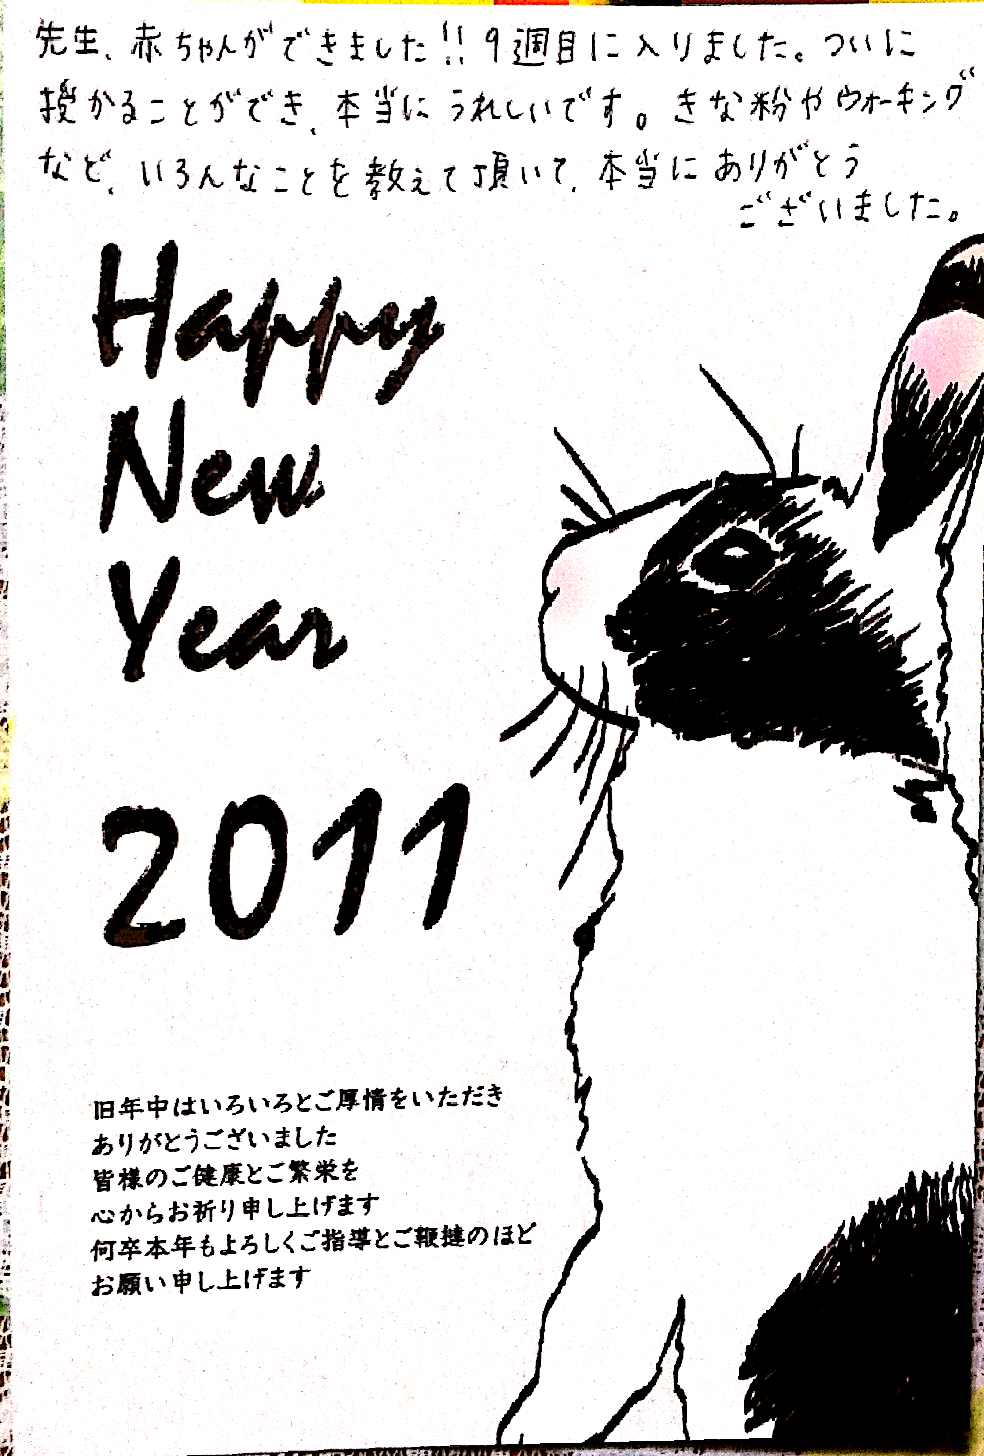 先生、赤ちゃんができました!! 9週目に入りました。ついに
授かることができ、本当にうれしいです。きな粉やウォーキング
など、いろんなことを教えて頂いて、本当にありがとう
ございました。
Happy
New
Year
2011
旧年中はいろいろとご厚情をいただき
ありがとうございました
皆様のご健康とご繁栄を
心からお祈り申し上げます
何卒本年もよろしくご指導とご鞭撻のほど
お願い申し上げます